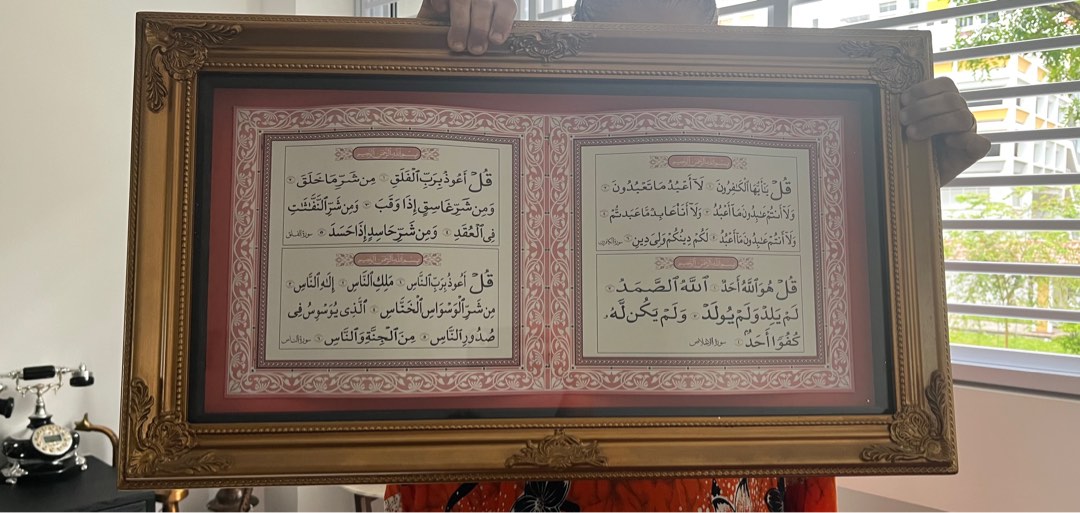 بسم الله الرحمن الرحيم
قُلْ يَٰٓأَيُّهَا ٱلْكَٰفِرُونَ ١ لَآ أَعْبُدُ مَا تَعْبُدُونَ ٢
وَلَآ أَنتُمْ عَٰبِدُونَ مَآ أَعْبُدُ ٣ وَلَآ أَنَا۠ عَابِدٌ مَّا عَبَدتُّمْ ٤
وَلَآ أَنتُمْ عَٰبِدُونَ مَآ أَعْبُدُ ٥ لَكُمْ دِينُكُمْ وَلِىَ دِينِ ٦ سورة الكافرون
بسم الله الرحمن الرحيم
قُلْ هُوَ ٱللَّهُ أَحَدٌ ١ ٱللَّهُ ٱلصَّمَدُ ٢
لَمْ يَلِدْ وَلَمْ يُولَدْ ٣ وَلَمْ يَكُن لَّهُۥ
كُفُوًا أَحَدٌۢ ٤ سورة الإخلاص
بسم الله الرحمن الرحيم
قُلْ أَعُوذُ بِرَبِّ ٱلْفَلَقِ ١ مِن شَرِّ مَا خَلَقَ ٢
وَمِن شَرِّ غَاسِقٍ إِذَا وَقَبَ ٣ وَمِن شَرِّ ٱلنَّفَّٰثَٰتِ
فِى ٱلْعُقَدِ ٤ وَمِن شَرِّ حَاسِدٍ إِذَا حَسَدَ ٥ سورة الفلق
بسم الله الرحمن الرحيم
قُلْ أَعُوذُ بِرَبِّ ٱلنَّاسِ ١ مَلِكِ ٱلنَّاسِ ٢ إِلَٰهِ ٱلنَّاسِ ٣
مِن شَرِّ ٱلْوَسْوَاسِ ٱلْخَنَّاسِ ٤ ٱلَّذِى يُوَسْوِسُ فِى
صُدُورِ ٱلنَّاسِ ٥ مِنَ ٱلْجِنَّةِ وَٱلنَّاسِ ٦ سورة الناس